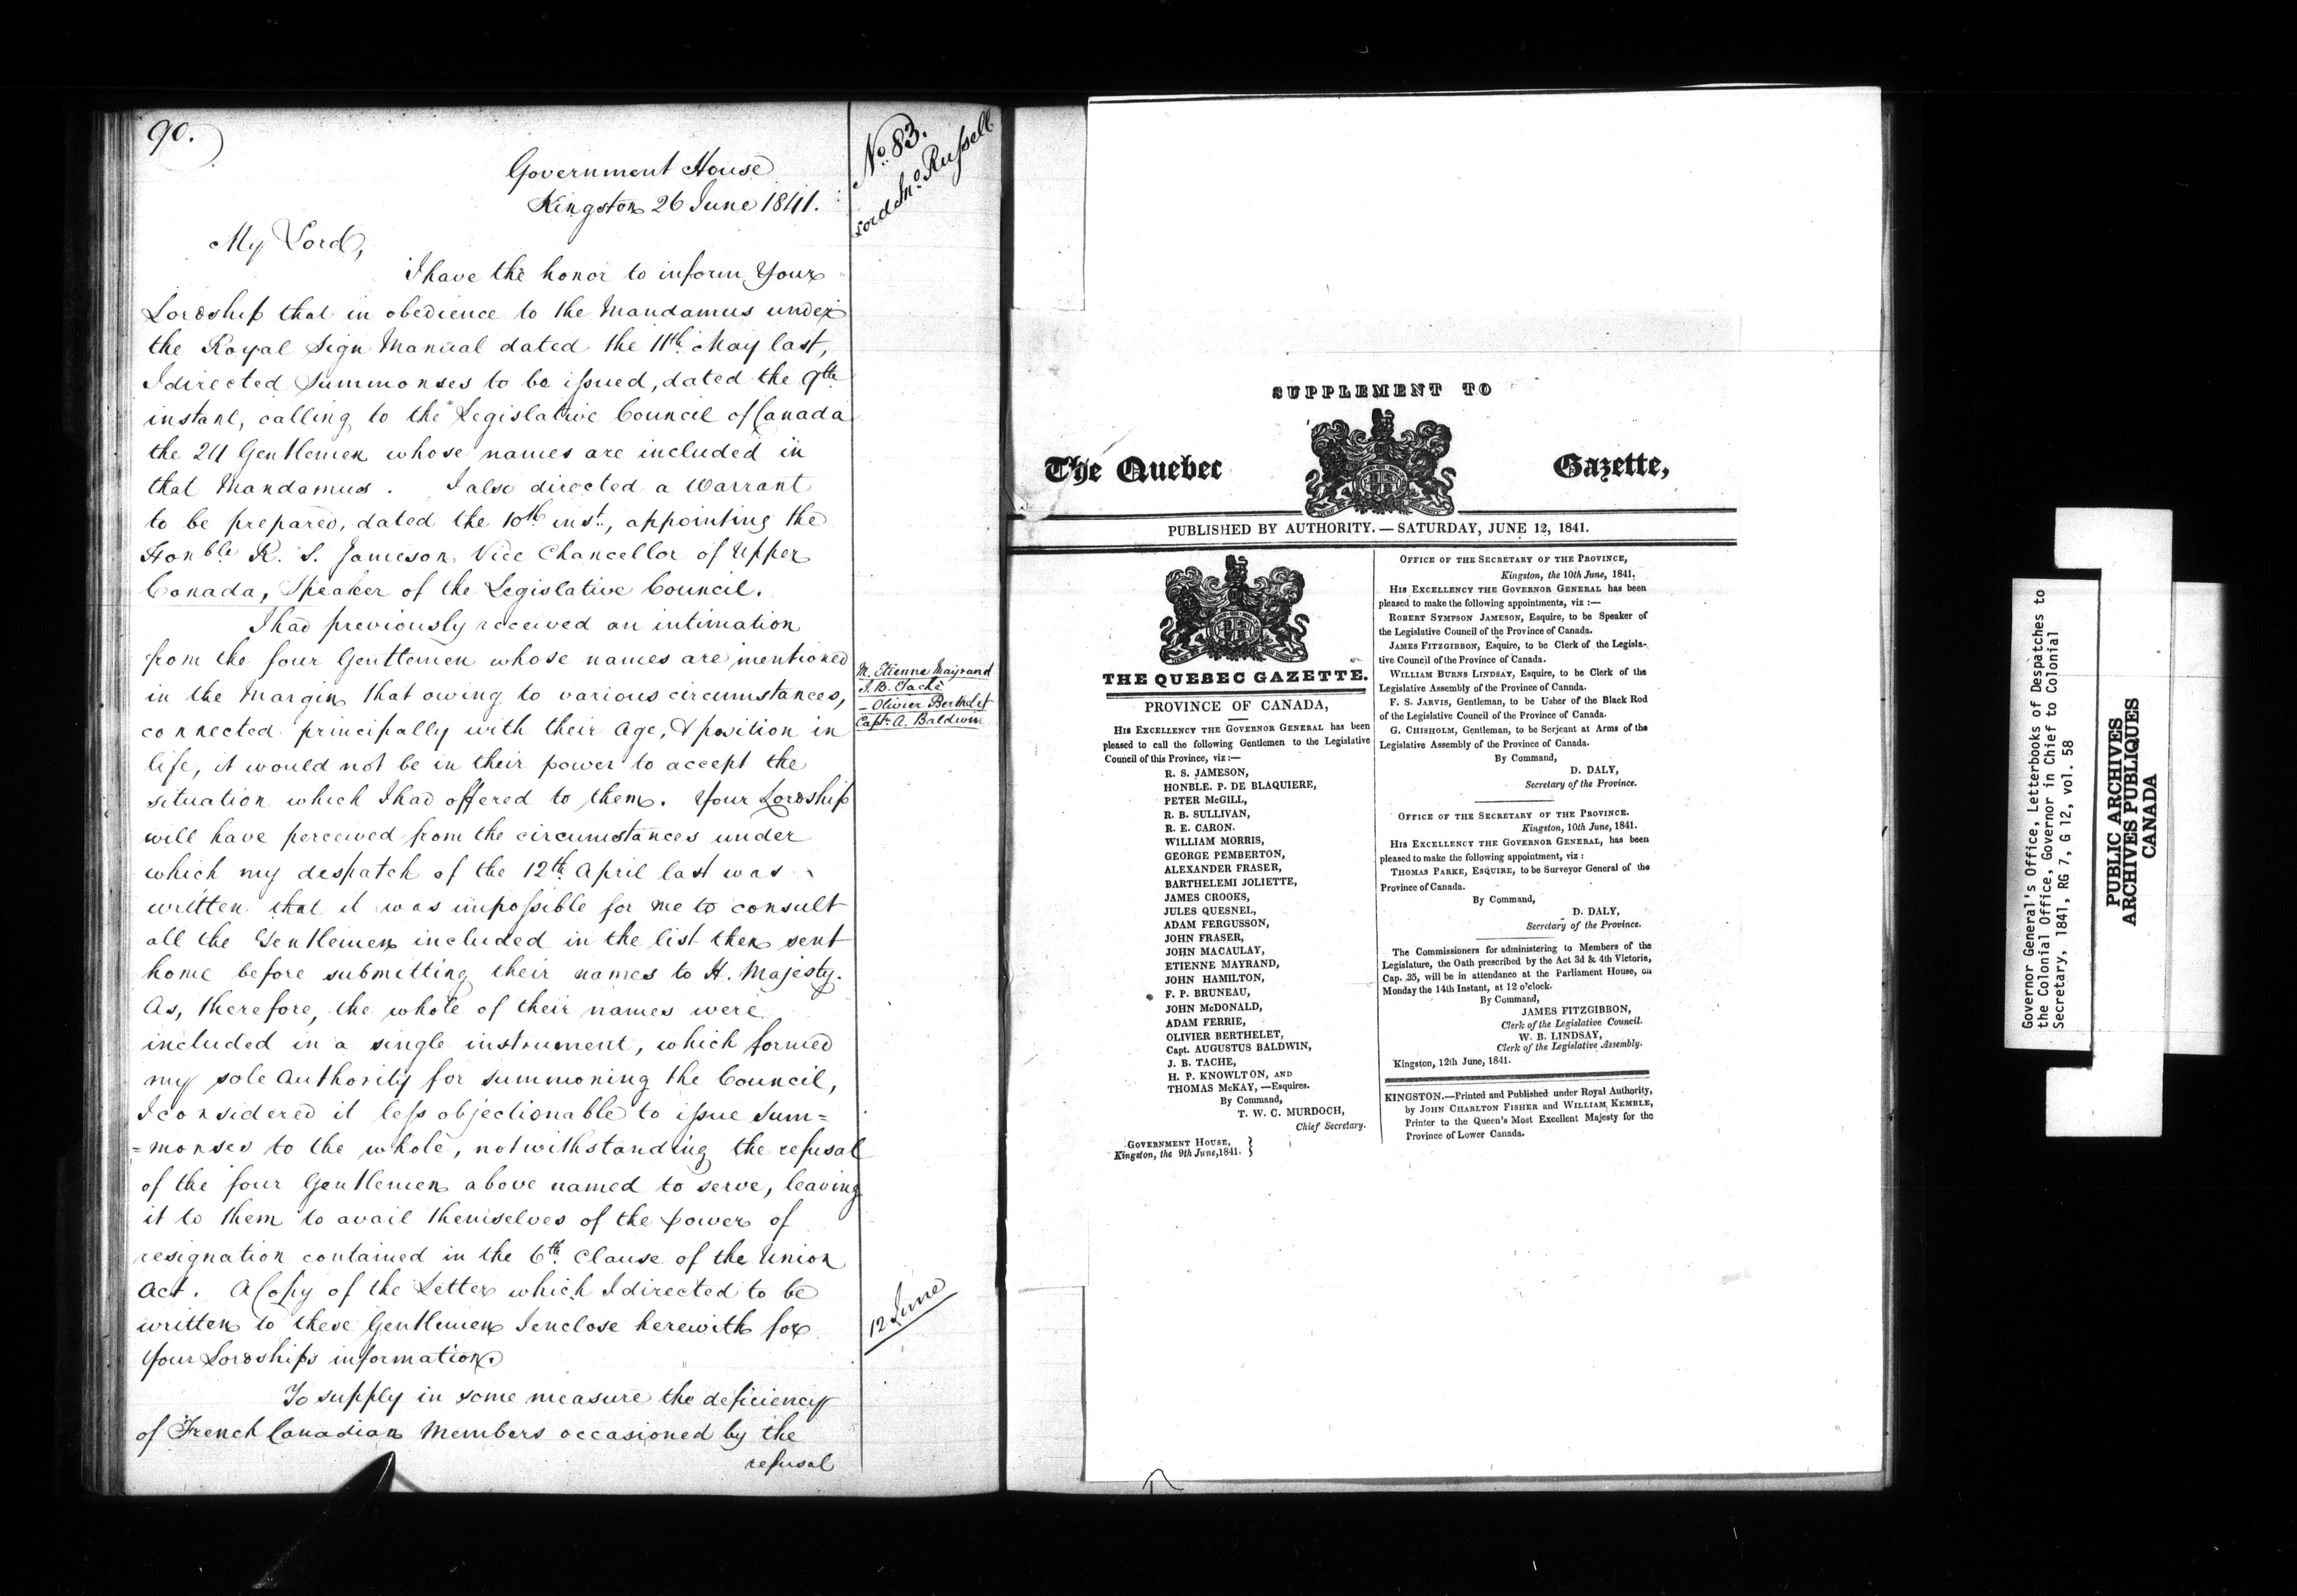 90.
Government House
Kingston 26 June 1841.
No. 83.
Lord Jno. Russell
My Lord,
I have the honor to inform Your
Lordship that in obedience to the Mandamus under
the Royal Sign Manual dated the 11th May last,
I directed Summonses to be issued, dated the 9th
instant, calling to the Legislative Council of Canada
the 24 Gentlemen whose names are included in
that Mandamus. I also directed a Warrant
to be prepared, dated the 10th inst., appointing the
Honble R. S. Jameson Vice Chancellor of Upper
Canada, Speaker of the Legislative Council.
I had previously received an intimation
from the four Gentlemen whose names are mentioned
in the Margin that owing to various circumstances,
connected principally with their age, & position in
life, it would not be in their power to accept the
situation which I had offered to them. Your Lordship
will have perceived from the circumstances under
which my despatch of the 12th April last was
written that it was impossible for me to consult
all the Gentlemen included in the list then sent
home before submitting their names to H. Majesty.
As, therefore, the whole of their names were
included in a single instrument, which formed
my sole Authority for summoning the Council,
I considered it less objectionable to issue Sum=
=monses to the whole, notwithstanding the refusal
of the four Gentlemen above named to serve, leaving
it to them to avail themselves of the power of
resignation contained in the 6th Clause of the Union
Act. A Copy of the Letter which I directed to be
written to these Gentlemen I enclose herewith for
Your Lordships information.
To supply in some measure the deficiency
of French Canadian Members occasioned by the
refusal
M. Etienne Mayrand
J. B. Taché
- Olivier Berthelet
Captn. A. Baldwin
12 June
SUPPLEMENT TO
The Quebec Gazette,
PUBLISHED BY AUTHORITY.—SATURDAY, JUNE 12, 1841.
THE QUEBEC GAZETTE.
PROVINCE OF CANADA,
HIS EXCELLENCY THE GOVERNOR GENERAL has been
pleased to call the following Gentlemen to the Legislative
Council of this Province, viz :—
R. S. JAMESON,
HONBLE. P. DE BLAQUIERE,
PETER McGILL,
R. B. SULLIVAN,
R. E. CARON.
WILLIAM MORRIS,
GEORGE PEMBERTON,
ALEXANDER FRASER,
BARTHELEMI JOLIETTE,
JAMES CROOKS,
JULES QUESNEL,
ADAM FERGUSSON,
JOHN FRASER,
JOHN MACAULAY,
ETIENNE MAYRAND,
JOHN HAMILTON,
F. P. BRUNEAU,
JOHN McDONALD,
ADAM FERRIE,
OLIVIER BERTHELET,
Capt. AUGUSTUS BALDWIN,
J. B. TACHE,
H. P. KNOWLTON, AND
THOMAS McKAY, —Esquires.
By Command,
T. W. C. MURDOCH,
Chief Secretary.
GOVERNMENT HOUSE,
Kingston, the 9th June, 1841. }
OFFICE OF THE SECRETARY OF THE PROVINCE,
Kingston, the 10th June, 1841.
HIS EXCELLENCY THE GOVERNOR GENERAL has been
pleased to make the following appointments, viz :—
ROBERT SYMPSON JAMESON, Esquire, to be Speaker of
the Legislative Council of the Province of Canada.
JAMES FITZGIBBON, Esquire, to be Clerk of the Legisla-
tive Council of the Province of Canada.
WILLIAM BURNS LINDSAY, Esquire, to be Clerk of the
Legislative Assembly of the Province of Canada.
F. S. JARVIS, Gentleman, to be Usher of the Black Rod
of the Legislative Council of the Province of Canada.
G. CHISHOLM, Gentleman, to be Serjeant at Arms of the
Legislative Assembly of the Province of Canada.
By Command,
D. DALY,
Secretary of the Province.
OFFICE OF THE SECRETARY OF THE PROVINCE.
Kingston, 10th June, 1841.
HIS EXCELLENCY THE GOVERNOR GENERAL, has been
pleased to make the following appointment, viz :
THOMAS PARKE, ESQUIRE, to be Surveyor General of the
Province of Canada.
By Command,
D. DALY,
Secretary of the Province.
The Commissioners for administering to Members of the
Legislature, the Oath prescribed by the Act 3d & 4th Victoria,
Cap. 35, will be in attendance at the Parliament House, on
Monday the 14th Instant, at 12 o'clock.
By Command,
JAMES FITZGIBBON,
Clerk of the Legislative Council.
W. B. LINDSAY,
Clerk of the Legislative Assembly.
Kingston, 12th June, 1841.
KINGSTON.—Printed and Published under Royal Authority,
by JOHN CHARLTON FISHER and WILLIAM KEMBLE,
Printer to the Queen's Most Excellent Majesty for the
Province of Lower Canada.
Governor General's Office, Letterbooks of Despatches to
the Colonial Office, Governor in Chief to Colonial
Secretary, 1841, RG 7, G 12, vol. 58
PUBLIC ARCHIVES
ARCHIVES PUBLIQUES
CANADA